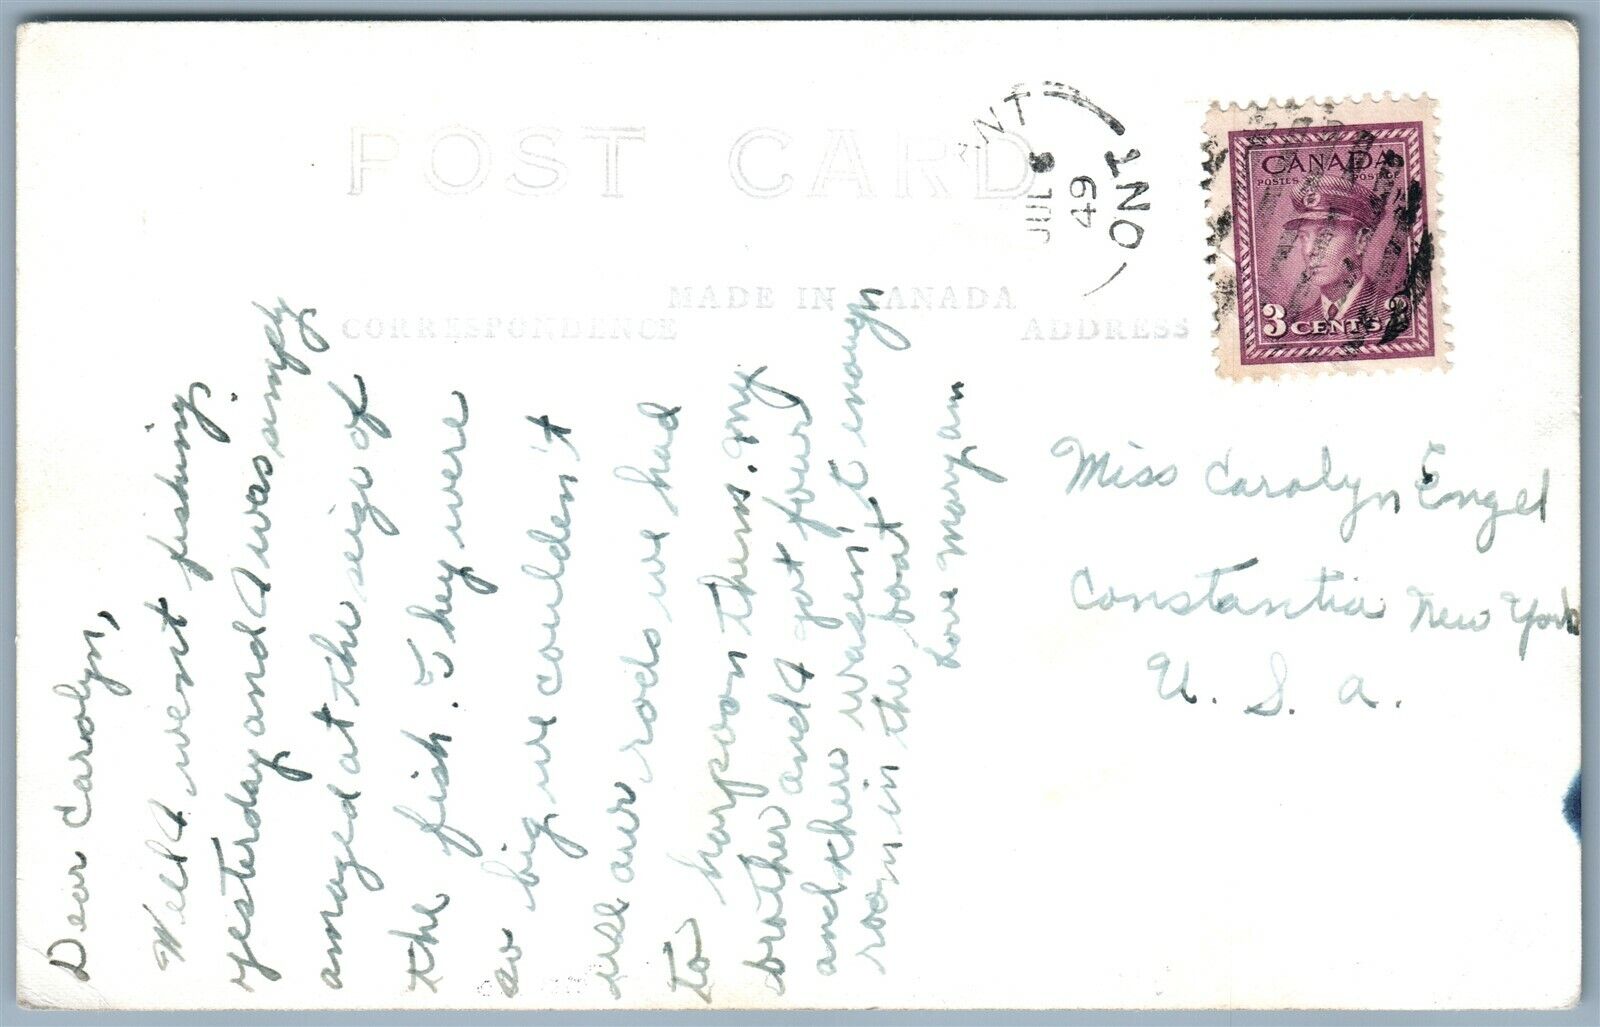 POST CARD
MADE IN CANADA
CORRESPONDENCE
ADDRESS
NT
JUL 6
49
ONT
CANADA
POSTES POSTAGE
3 CENTS 3
Dear Carolyn,
Well I went fishing
yesterday and I was simply
amazed at the seize of
the fish. They were
so big we coulden't
use our rods we had
to harpoon them. My
brother and I got four
and there wasen't enough
room in the boat
Love Maryann
Miss Carolyn Engel
Constantia New York
U. S. A.